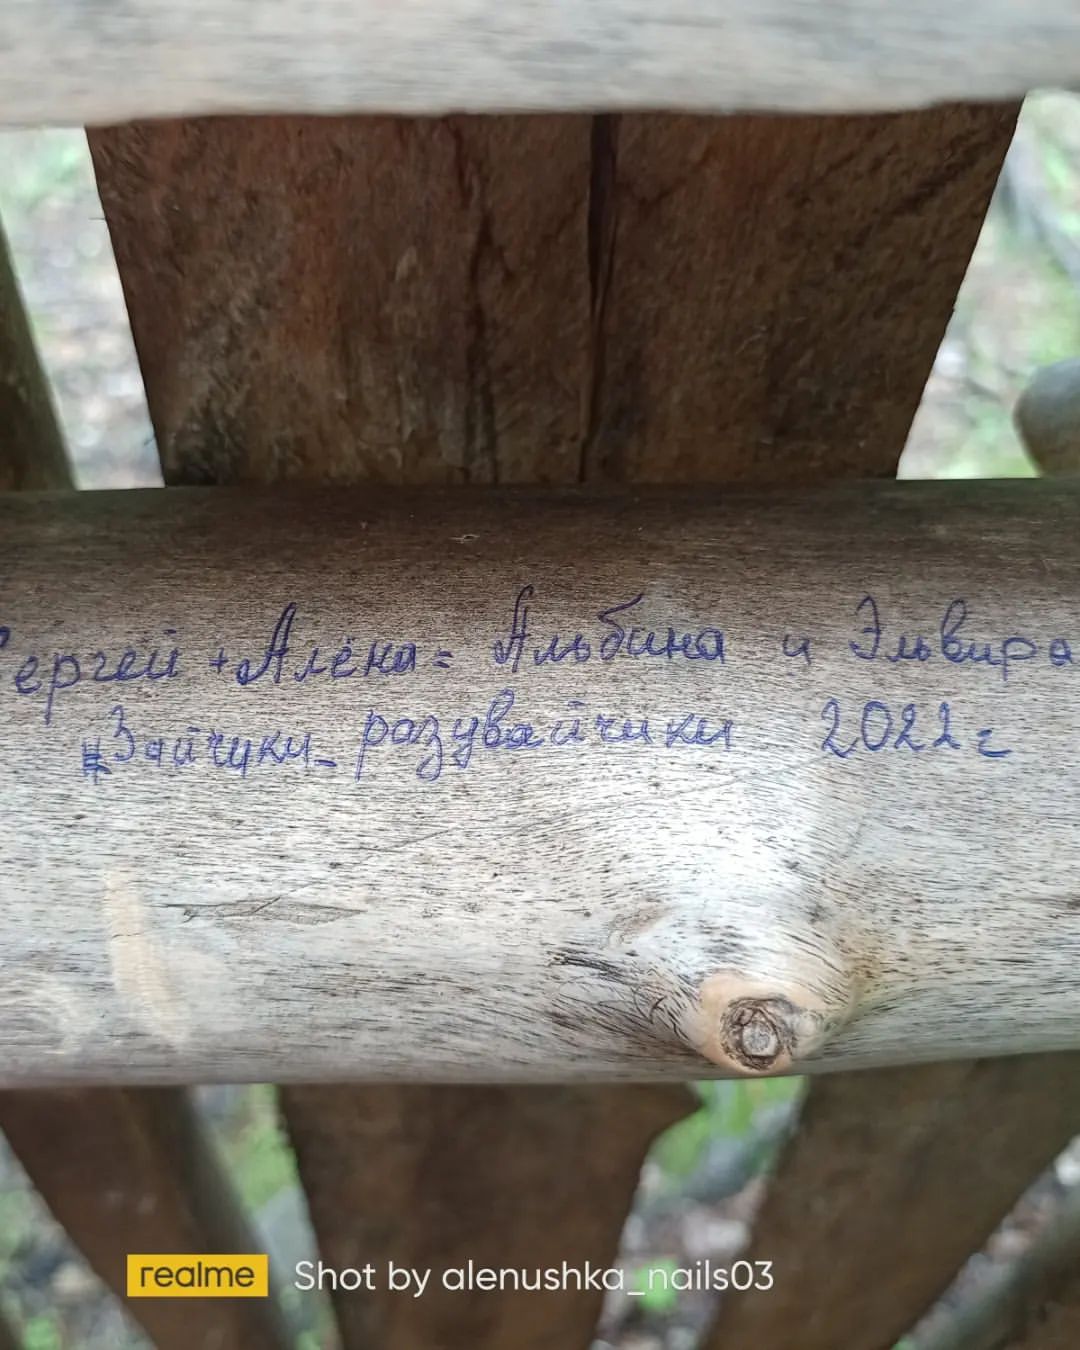 Сергей + Алёна = Альбина и Эльвира
Зайчики - разувайчики 2022 г
realme Shot by alenushka_nails03